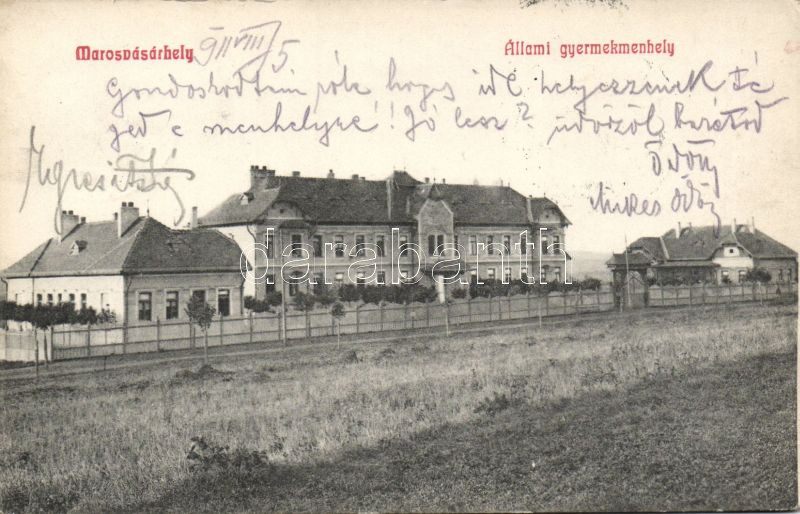 Marosvásárhely 911 VIII/5 Állami gyermekmenhely
Gondoskodtam róla hogy ide helyezzenek té
ged e menhelyre! Jó lesz? üdvözöl barátod
Ödön
Mikes Ödön
darabanth